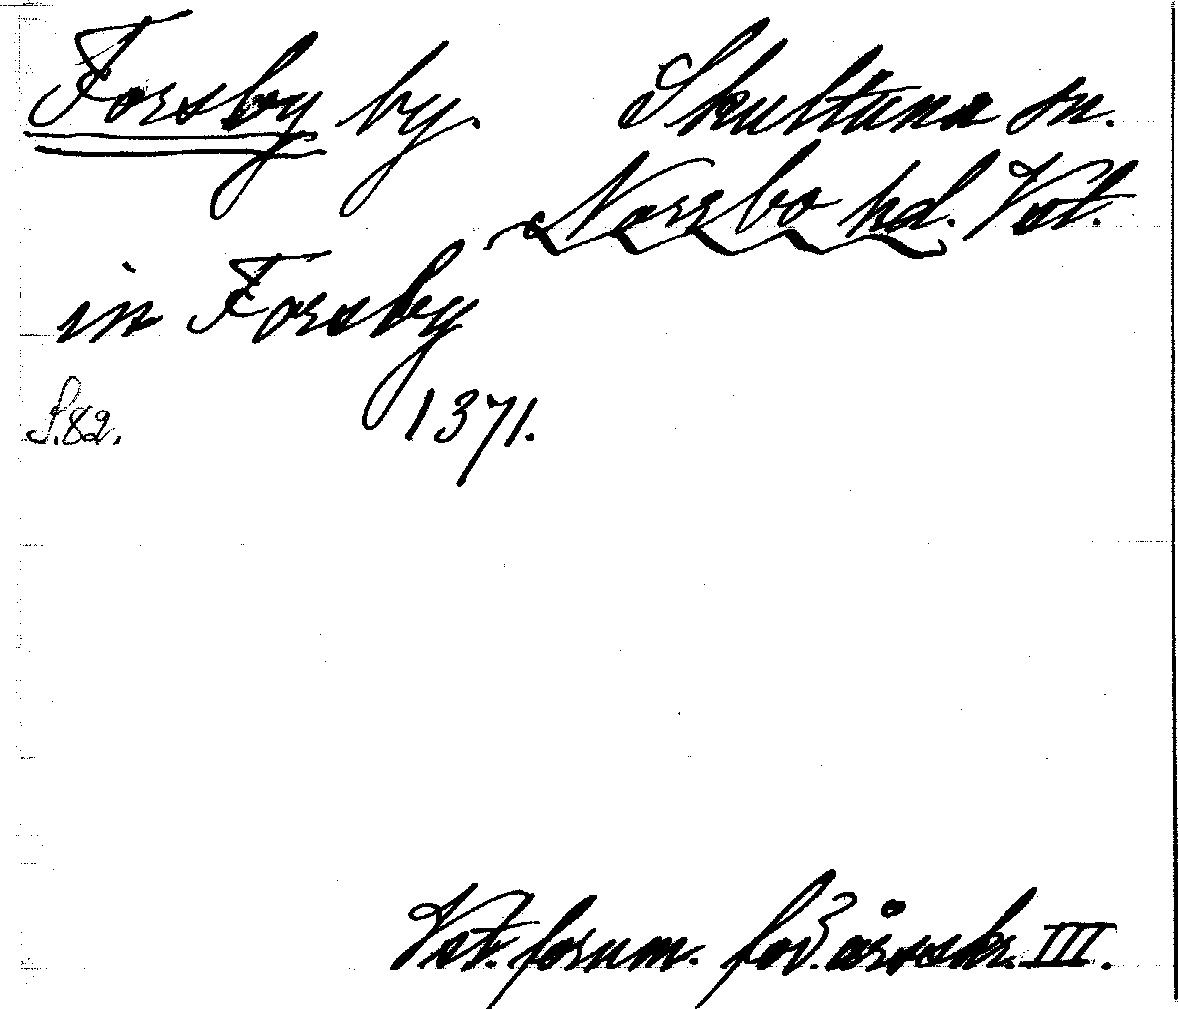 Forsby by. Skultuna sn.
Norrbo hd. Vst.
in Forsby
S.82. 1371.
Vst. fornm. föv. årsskr. III.